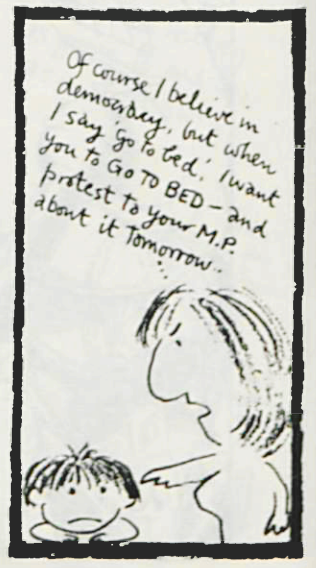 Of course I believe in
democracy, but when
I say 'go to bed', I want
you to GO TO BED – and
protest to your M.P.
about it Tomorrow..